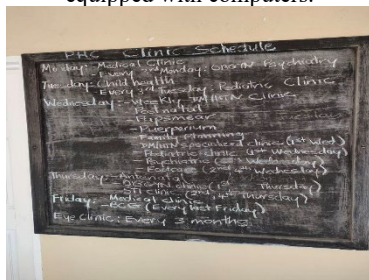 equipped with computers.
PHC Clinic Schedule
Monday:- Medical Clinic
- Every Monday: OBGYN Psychiatry
Tuesday:- Child health
- Every 3rd Tuesday: Pediatric Clinic
Wednesday:- Weekly Clinic
- Papsmear
- Puerperium
- Family Planning
- specialized clinic (1st Wed)
- Pediatric clinic (4th Wednesday)
- Psychiatric ( Wednesday)
- (2nd 4th Wednesday)
Thursday:- Antenatal
- OBGYN clinic (1st Thursday)
- STI clinic (2nd 4th Thursday)
Friday:- Medical clinic
- BCG (Every last Friday)
Eye Clinic: Every 3 months.